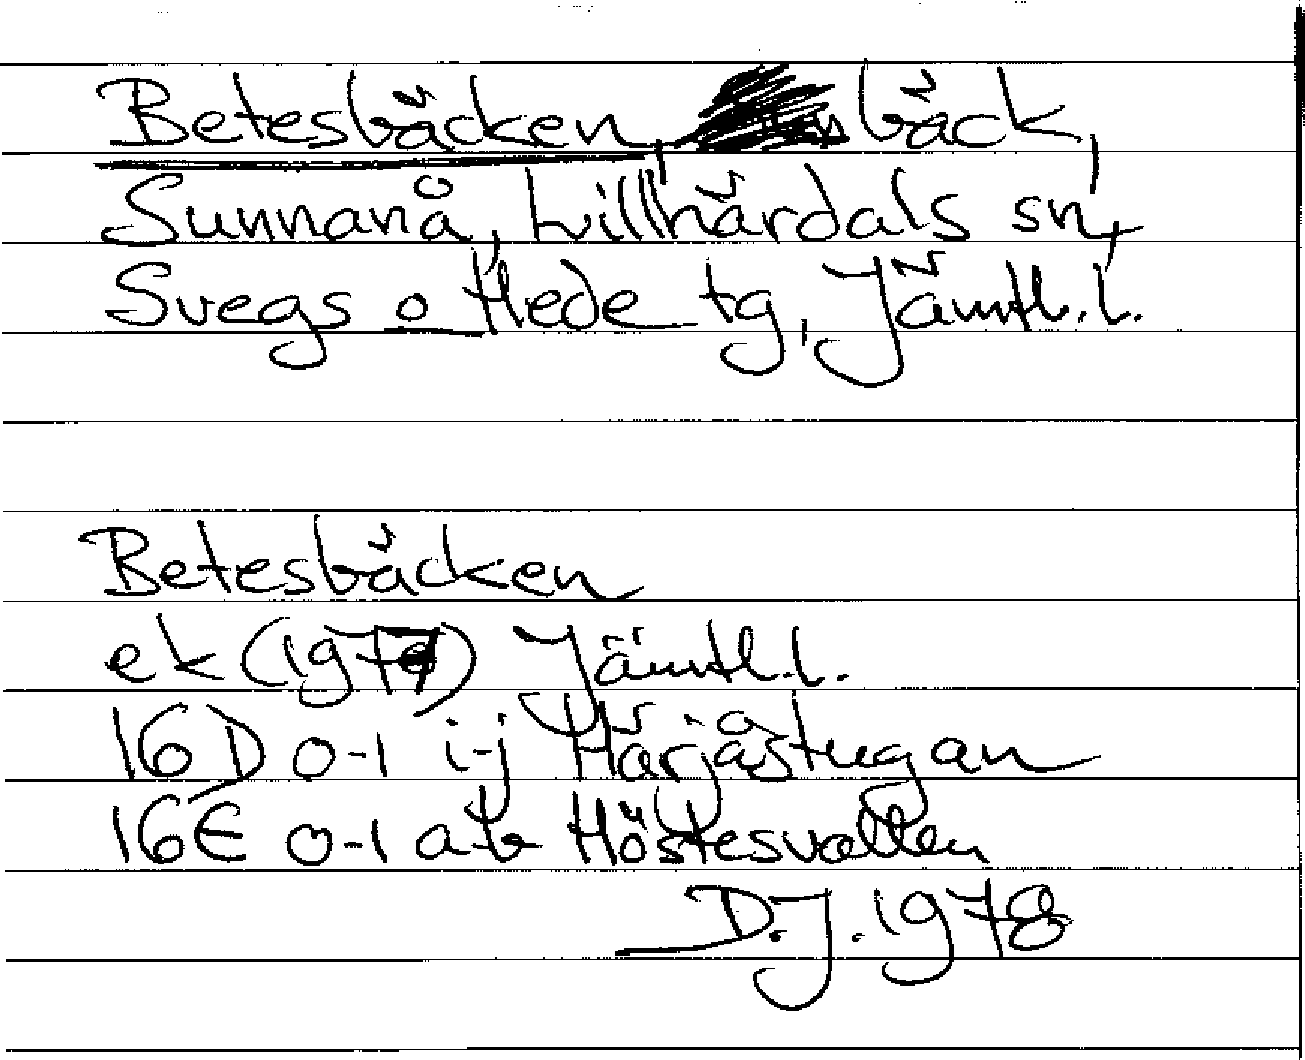 Betesbäcken, bäck,
Sunnanå, Lillhärdals sn,
Svegs o Hede tg, Jämtl.l.
Betesbäcken
ek Jämtl.l.
16D 0-1 i-j Härjåstugan
16E 0-1 a-b Höstesvallen
D.J. 1978